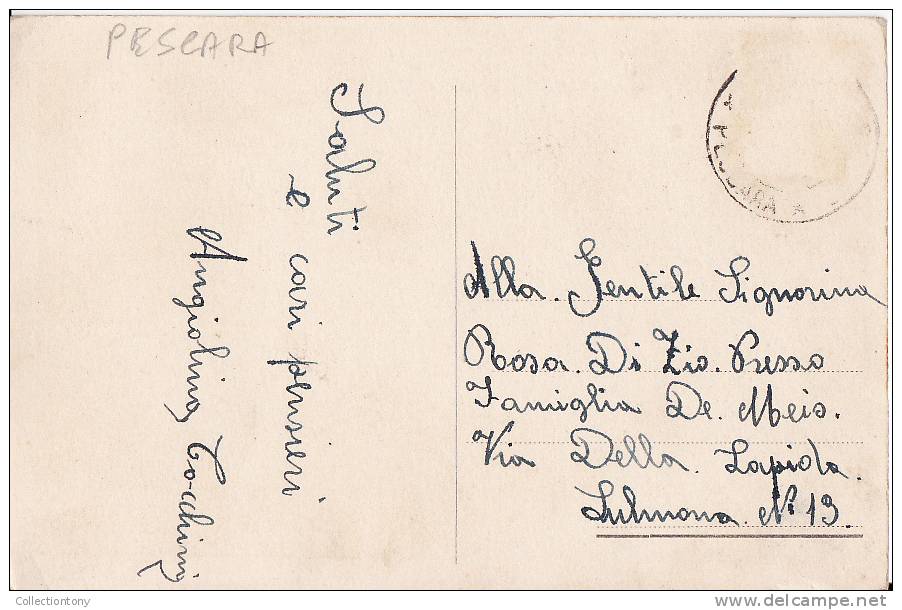 PESCARA
Saluti
e cari pensieri
Angiolina Tocchini
PESCARA
Alla. Gentile Signorina
Rosa. Di Zio. Presso
Famiglia De. Meis.
Via Della. Lapida
Sulmona. N° 13.
Collectiontony
delcampe.net